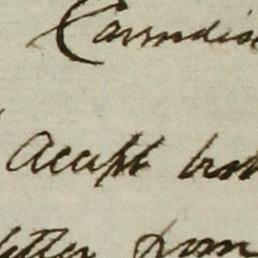 Cavendis
accept
letter from